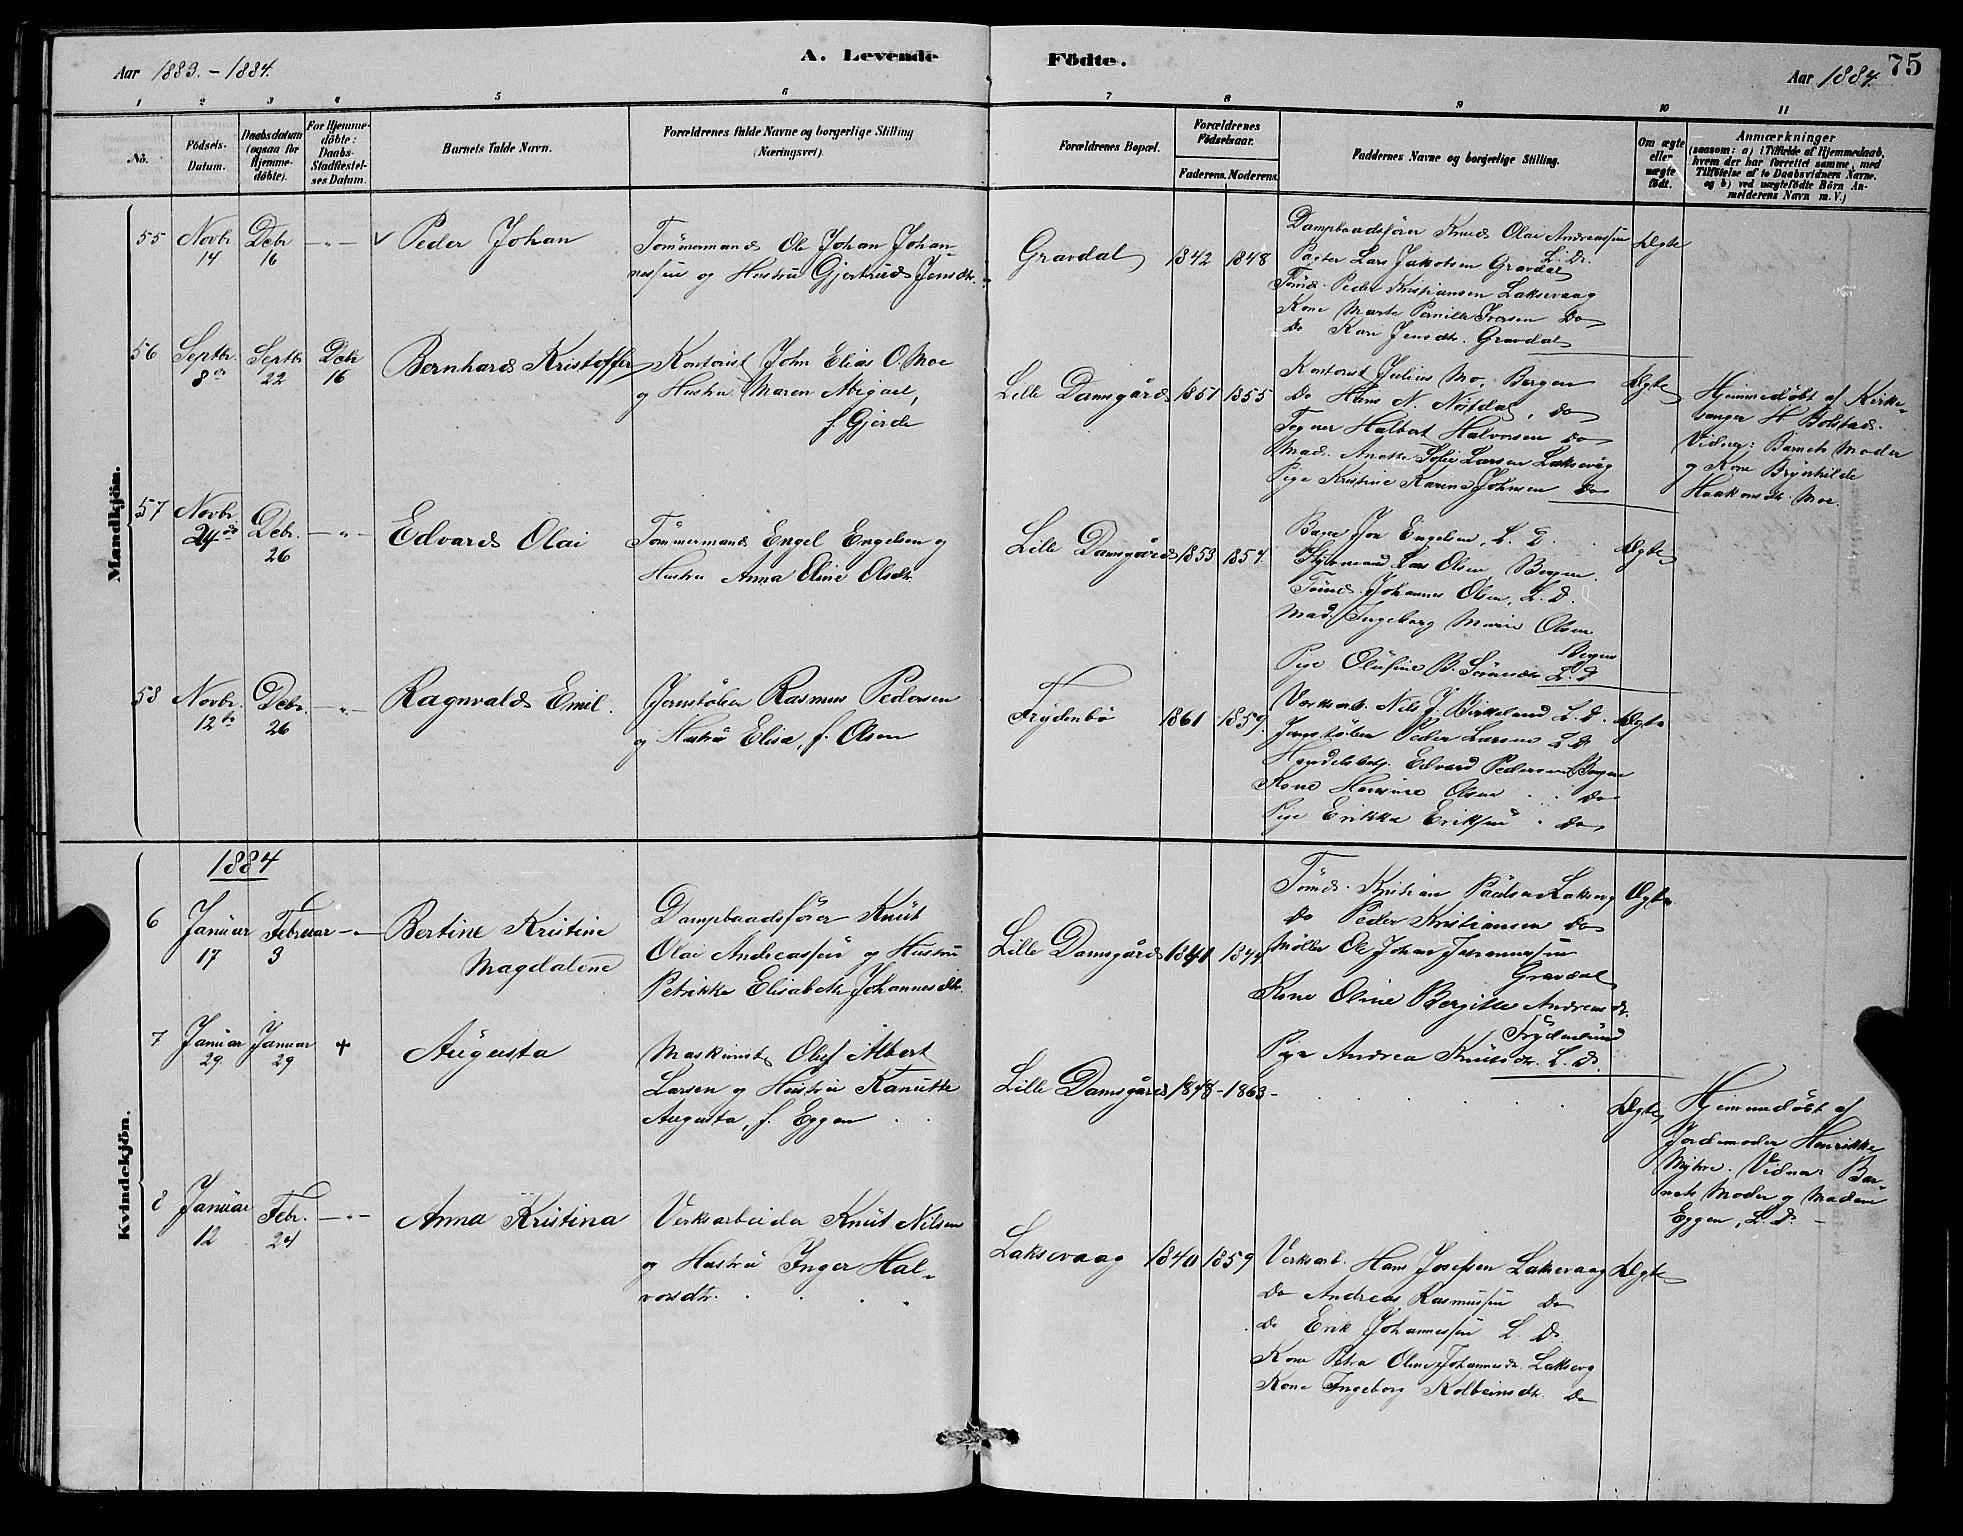 Aar 1883.-1884.
A. Levende Födte.
Aar 1884.
75
1 2 3 4 5 6 7 8 9 10 11
No.
Födsels-Datum.
Daabsdatum (ogsaa for Hjemme-döbte).
For Hjemme-döbte: Daabs-Stadfæstel-ses Datum.
Barnets fulde Navn.
Forældrenes fulde Navne og borgerlige Stilling (Næringsvei).
Forældrenes Bopæl.
Forældrenes Födselsaar.
Faderens. Moderens.
Faddernes Navne og borgerlige Stilling.
Om ægte eller uægte födt.
Anmærkninger
(saasom: a) i Tilfælde af Hjemmedaab, hvem der har forrettet samme, med Tilföielse af to Daabsvidners Navne. og b) ved uægtefödte Börn An-melderens Navn m. V.)
Mandkjön.
55 Novbr 14 Debr 16 - „ - Peder Johan
Tømmermand Ole Johan Johan-
nessen og Hustru Gjertrud Jensdtr.
Gravdal 1842 1848
Dampbaadsfører Knud Olai Andreassen
L. D.
Pagter Lars Jakobsen Gravdal
Tømd. Peder Kristiansen Laksevaag
Kone Marte Pernille Iversen Do
Do Kari Jensdtr. Gravdal
Ægte
56 Septbr. 8de Septbr 22 Debr 16 Bernhard Kristoffer
Kontorist John Elias O. Moe
og Hustru Maren Abigael,
f. Gjerde
Lille Damsgård 1851 1855
Kontorist Julius Mo, Bergen
Do Hans N. Nøstdal, do
Tegner Halbert Halvorsen do
Mad. Anette Sofie Larsen Laksevåg
Pige Kristine Karine Johnsen do
Ægte
Hjemmedøbt af Kirke-
sanger H. Bolstad.
Vidner: Barnets Moder
og Kone Brynhilde
Haakonsdtr. Moe.
57 Novbr 24de Debr. 26 - „ - Edvard Olai
Tømmermand Engel Engelsen og
Hustru Anna Oline Olsdtr.
Lille Damsgård 1853 1854.
Bager Jon Engelsen, L. D.
Styrmand Lars Olsen Bergen.
Tømd. Johannes Olsen, L. D.
Mad. Ingeborg Marie Olsen
Bergen
Pige Olufine B. L. D.
Ægte
58 Novbr. 12te Debr. 26 - „ - Ragnvald Emil.
Jernstøber Rasmus Pedersen
og Hustru Elisa, f. Olsen
Frydenbø 1861 1859.
Verksarb. Nils J. Birkeland L. D.
Jernstøber Peder Larsen L. D.
Handelsbetj. Edvard Pedersen Bergen
Kone Hansine Olsen do
Pige Erikke Eriksen do
Ægte
Kvindekjön.
1884
6 Januar 17 Februar 3 - „ - Bertine Kristine
Magdalene
Dampbaadsfører Knut
Olai Andreassen og Hustru
Petrikke Elisabeth Johannesdtr.
Lille Damsgård 1841 1844
Tømd. Kristian Paulsen Laksevg
Do Peder Kristiansen Do
Møller Ole Johan Johannessen
Gravdal
Kone Oline Bergitte Andreasdtr.
Frydenlund
Pige Andrea Knutsdtr. L. D.
Ægte
7 Januar 29 Januar 29 + Augusta
Maskinist Oluf Albert
Larsen og Hustru Kanutte
Augusta, f. Eggen
Lille Damsgård 1848 - 1863 -
Ægte
Hjemmedøbt af
Jordemoder Henrikke
Myhre. Vidner Bar-
nets Moder og Madam
Eggen, L. D. -
8 Januar 12 Febr. 24 - „ - Anna Kristina
Verksarbeider Knut Nilsen
og Hustru Inger Hal-
vorsdtr.
Laksevaag 1840 1859
Verksarb. Hans Josefsen Laksevaag
Do Andreas Rasmussen Do
do Erik Johannessen L. D.
Kone Petra Oline Johannesdr. Laksevg
Kone Ingeborg Kolbeinsdtr. Do
Ægte